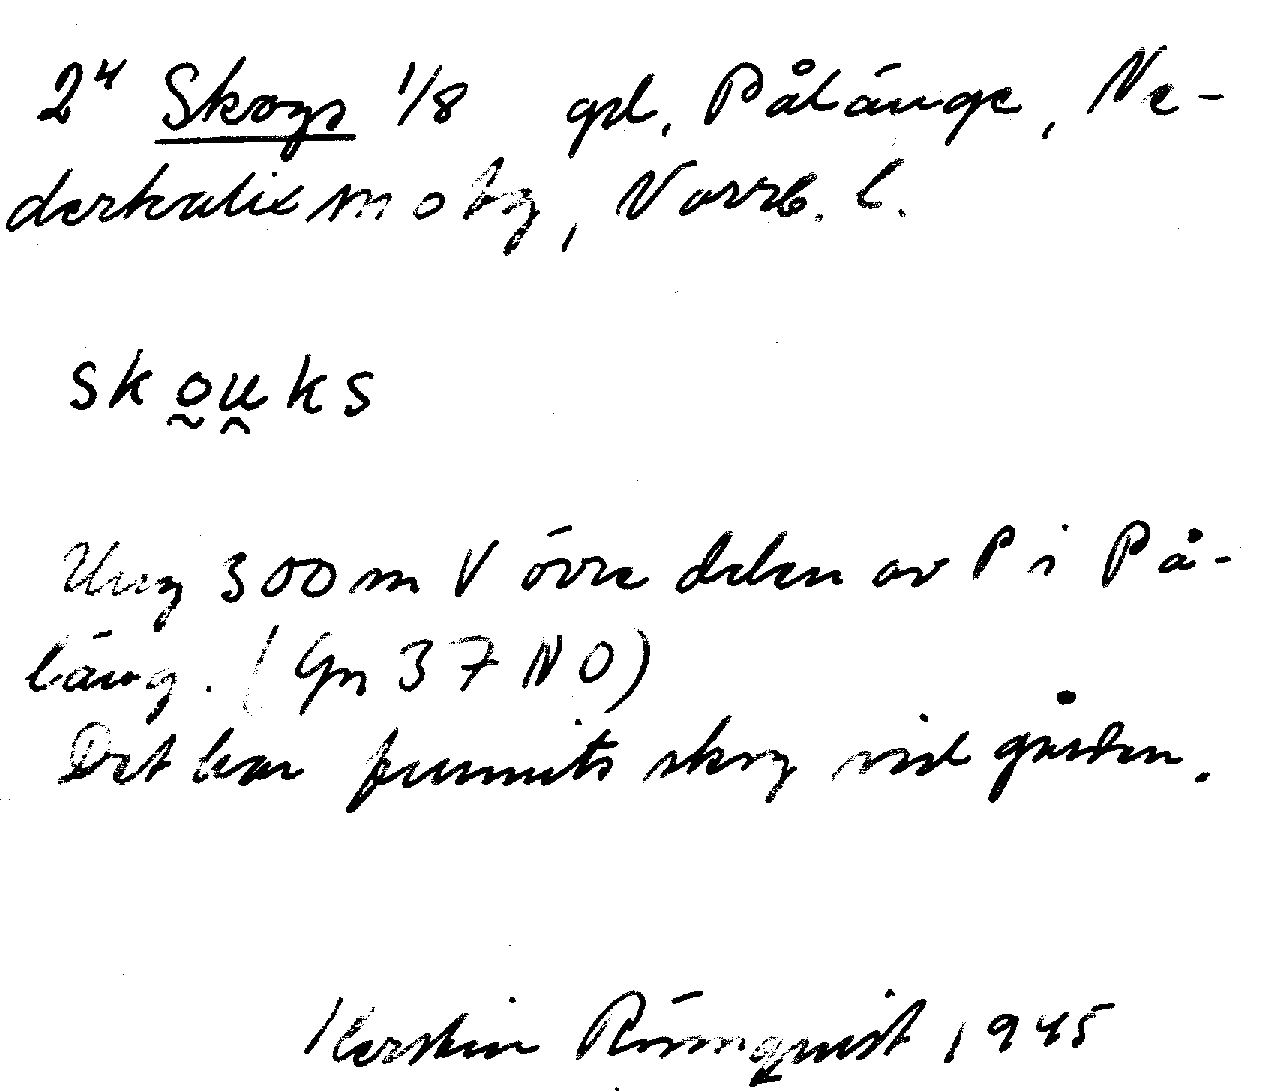 2⁴ Skogs 1/8 gd, Pålänge, Ne-
derkalix m o tg, Norrb. l.
sko̰u̯ks
Ung 300 m V övre delen av P i På-
läng. (Gn 37 NO)
Det har funnits skog vid gården.
Kerstin Rönnquist, 1945